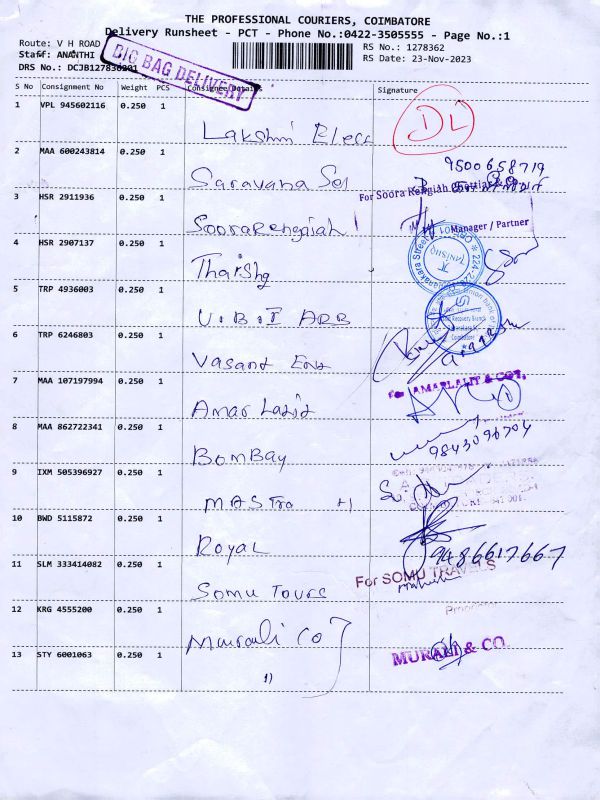 THE PROFESSIONAL COURIERS, COIMBATORE
Delivery Runsheet - PCT - Phone No.:0422-3505555 - Page No.:1
Route: V H ROAD
RS No.: 1278362
Staff: ANANTHI
RS Date: 23-Nov-2023
DRS No.: DCJB127836201
BIG BAG DELIVERY
S No Consignment No Weight PCS Consignee Details Signature
1 VPL 945602116 0.250 1 Lakshmi Elecc DL
2 MAA 600243814 0.250 1 Saravana Sel 9500658719
For Soora Rengiah Chettiar &
3 HSR 2911936 0.250 1 SooraRengaiah
Manager / Partner
4 HSR 2907137 0.250 1 Thaishg
5 TRP 4936003 0.250 1 U.B.I ARB
Recovery Branch
Coimbatore
6 TRP 6246803 0.250 1 Vasant Ent
For AMARLALIT & COY,
7 MAA 107197994 0.250 1 Amar Lalit
8 MAA 862722341 0.250 1 BomBay 9843096704
9 IXM 505396927 0.250 1 MASTro H
10 BWD 5115872 0.250 1 Royal 9486617667
11 SLM 333414082 0.250 1 Somu Tours For SOMU TRAVELS
12 KRG 4555200 0.250 1 Murali Co
13 STY 6001063 0.250 1 MURALI & CO.